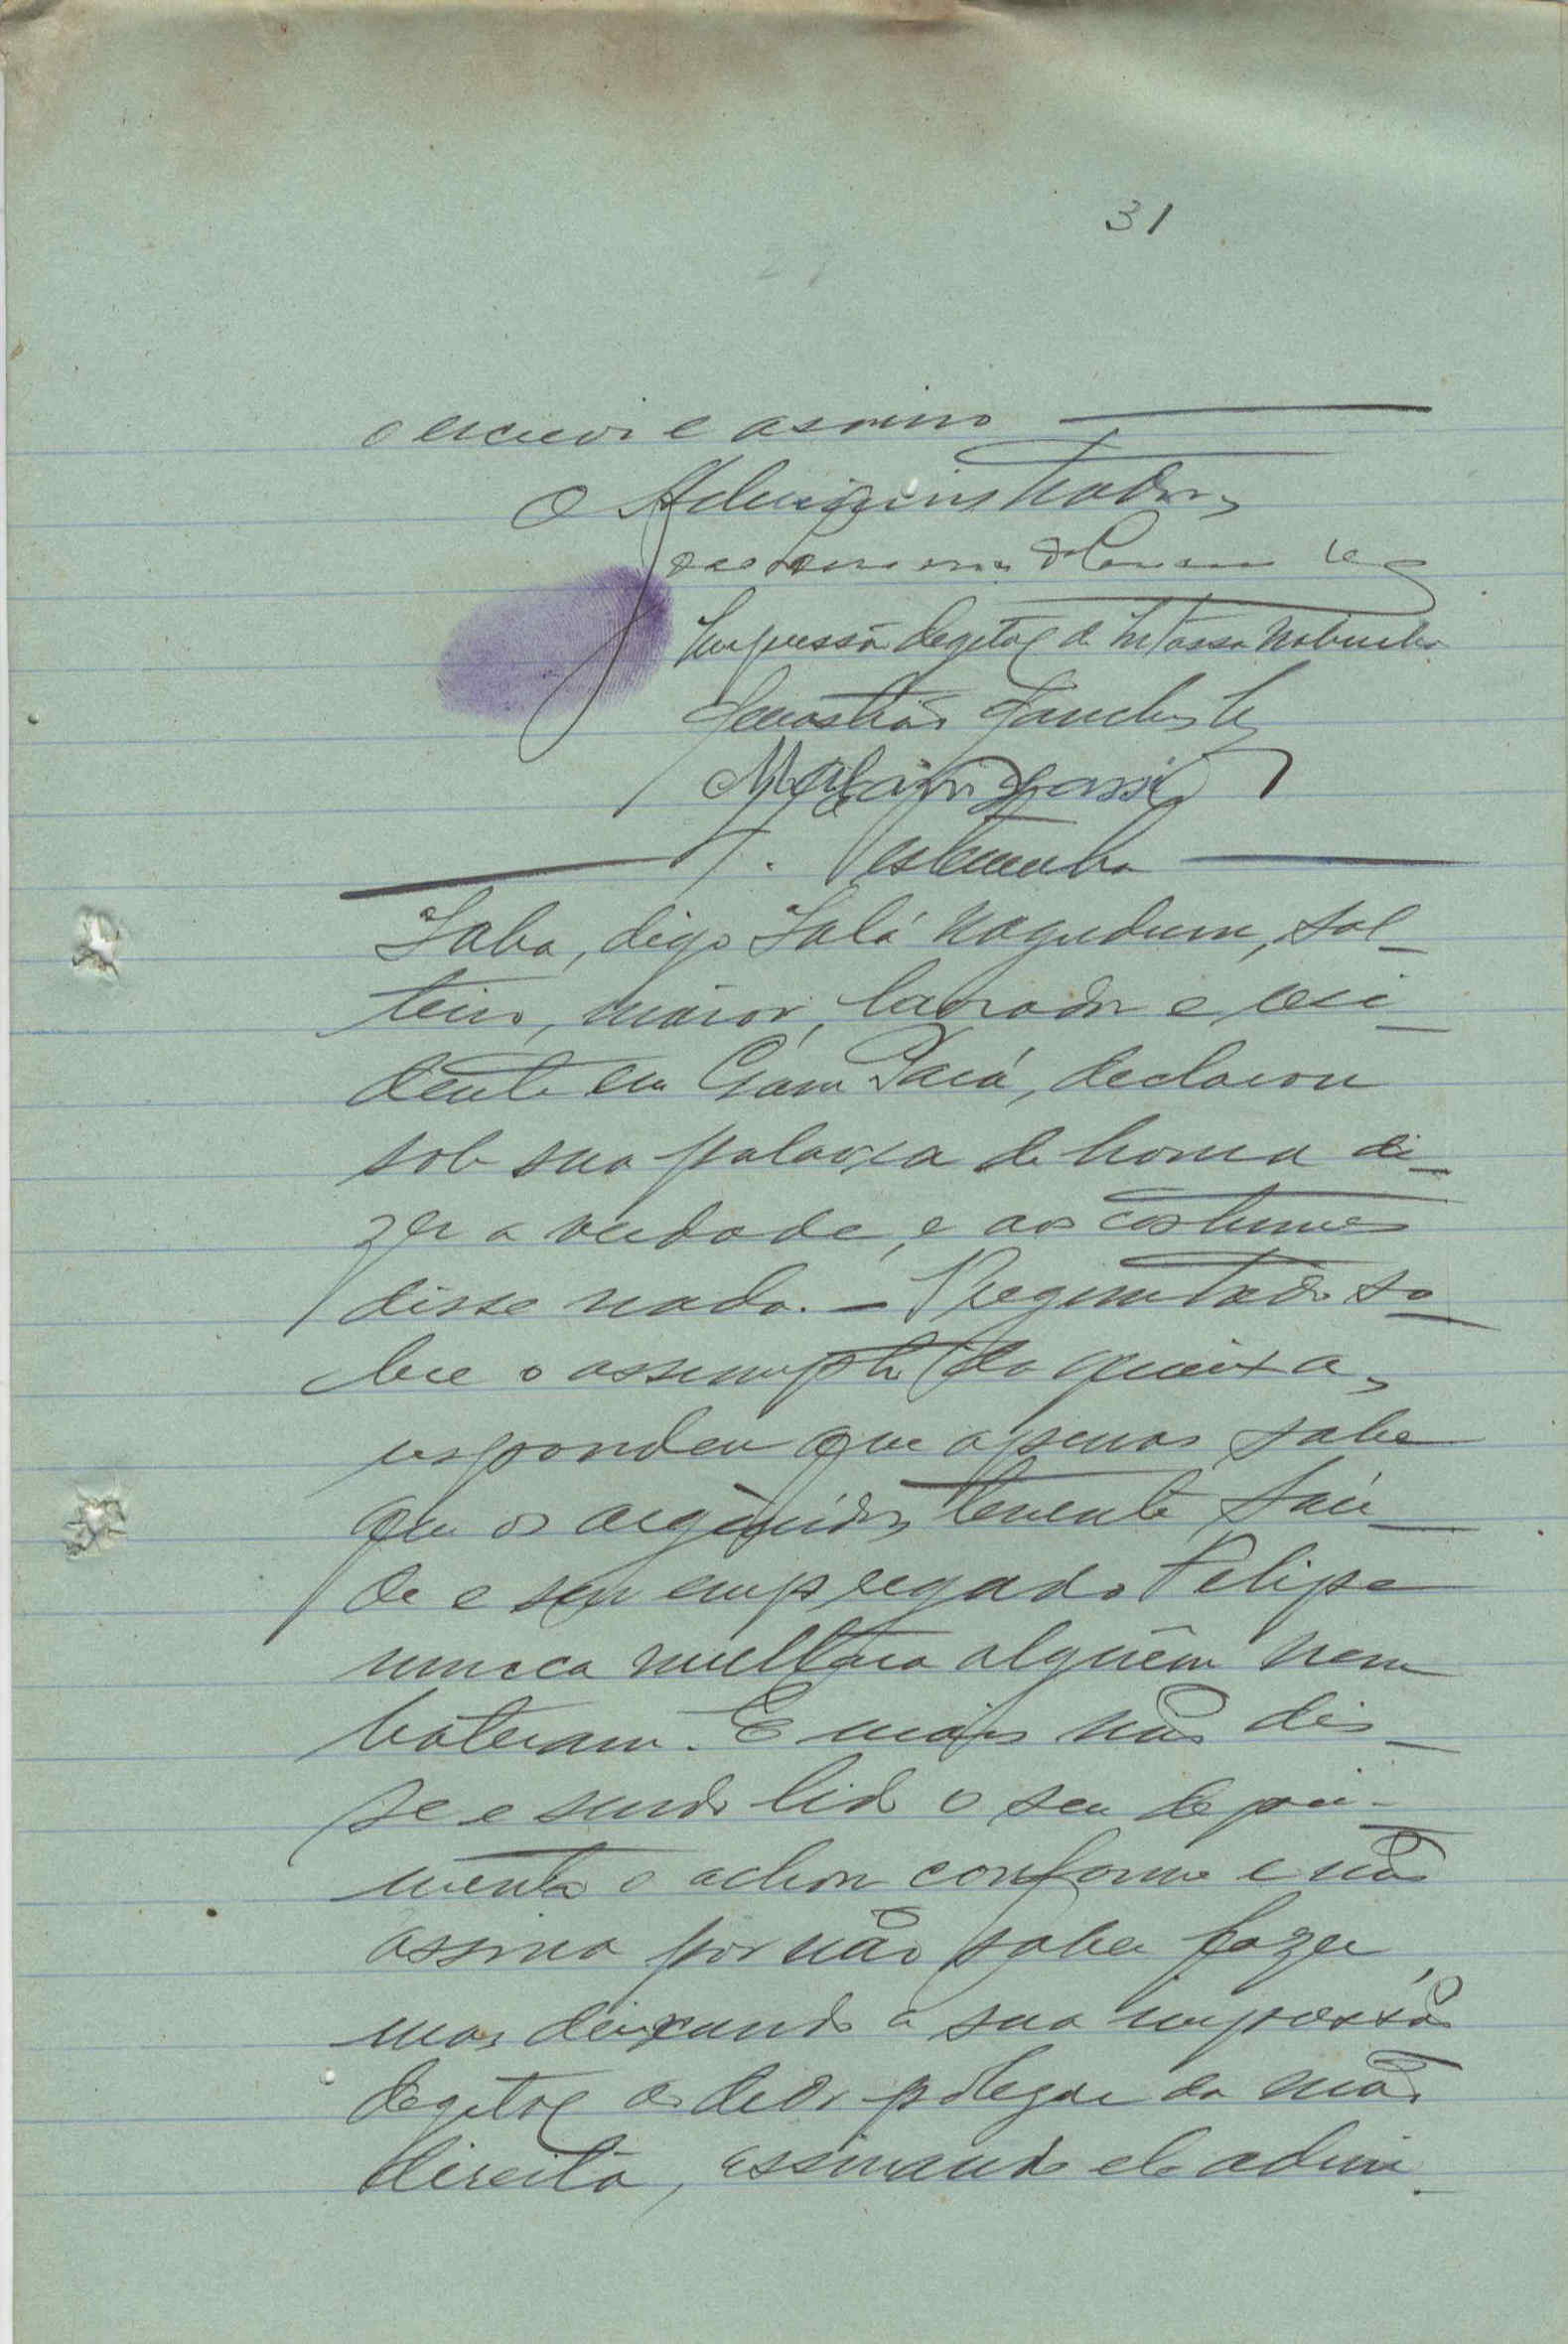 31
o escrevi e assino
O Administrador,
Impressão degital de
Sebastião Sanches
7.ª Testemunha
Saba, digo Salá Nagudum, sol-
teiro, maior, lavrador e resi-
dente em Gam Pará, declarou
sob sua palavra de honra di-
zer a verdade, e aos costumes
disse nada. — Preguntado so-
bre o assumpto da queixa,
respondeu que apenas sabe
que os argüidos, tenente Saú-
de e seu empregado Felipe
nunca multara alguêm nem
bateram. E mais não dis-
se e sendo lido o seu depoi-
mento o achou conforme e não
assina por não saber fazer,
mas deixando a sua impressão
degital do dedo polegar da mão
direita, assinando ele admi-